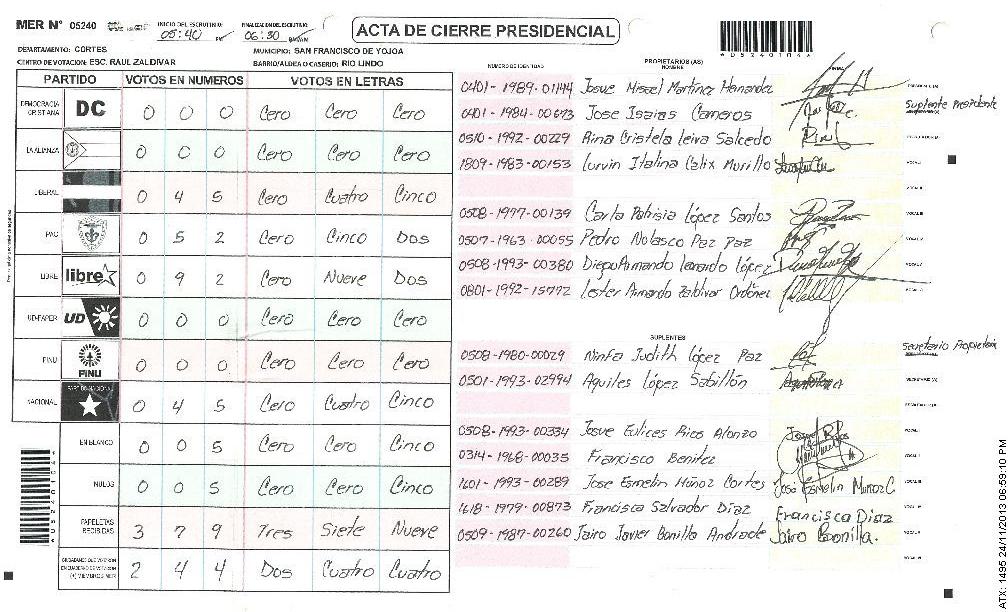 MER N° 05240
INICIO DEL ESCRUTINIO: 05:40
FINALIZACION DEL ESCRUTINIO: 06:30
ACTA DE CIERRE PRESIDENCIAL
DEPARTAMENTO: CORTES
MUNICIPIO: SAN FRANCISCO DE YOJOA
CENTRO DE VOTACION: ESC. RAUL ZALDIVAR
BARRIO/ALDEA O CASERIO: RIO LINDO
PARTIDO VOTOS EN NUMEROS VOTOS EN LETRAS
DEMOCRACIA CRISTIANA DC 0 0 0 Cero Cero Cero
LA ALIANZA 0 0 0 Cero Cero Cero
LIBERAL 0 4 5 Cero Cuatro Cinco
PAC 0 5 2 Cero Cinco Dos
LIBRE libre 0 9 2 Cero Nueve Dos
UD-FAPER UD 0 0 0 Cero Cero Cero
PINU PINU 0 0 0 Cero Cero Cero
NACIONAL PARTIDO NACIONAL 0 4 5 Cero Cuatro Cinco
EN BLANCO 0 0 5 Cero Cero Cinco
NULOS 0 0 5 Cero Cero Cinco
PAPELETAS RECIBIDAS 3 7 9 Tres Siete Nueve
CIUDADANOS QUE VOTARON EN CUADERNO DE VOTACION (+) MIEMBROS MER 2 4 4 Dos Cuatro Cuatro
NUMERO DE IDENTIDAD PROPIETARIOS (AS) NOMBRE
0401-1989-01144 Josue Misael Martinez Hernandez
0401-1984-00673 Jose Isaias Cameros Suplente Presidente
0510-1992-00229 Rina Cristela Leiva Salcedo
1809-1983-00153 Lurvin Italina Calix Murillo
0508-1977-00139 Carla Patrisia López Santos
0507-1963-00055 Pedro Nolasco Paz Paz
0508-1993-00380 Diego Armando Leonardo López
0801-1992-15772 Lester Armando Zaldivar Ordoñez
SUPLENTES
0508-1980-00029 Ninfa Judith López Paz Secretario Propietario
0501-1993-02994 Aquiles López Sabillón
0508-1993-00334 Josue Eulices Rios Alonzo
0314-1968-00035 Francisco Benitez
1601-1993-00289 Jose Esmelin Muñoz Cortes José Esmelin Muñoz C
1618-1979-00873 Francisca Salvador Diaz Francisca Diaz
0509-1987-00260 Jairo Javier Bonilla Andrade Jairo Bonilla.
ATX: 1495 24/11/2013 06:59:10 PM